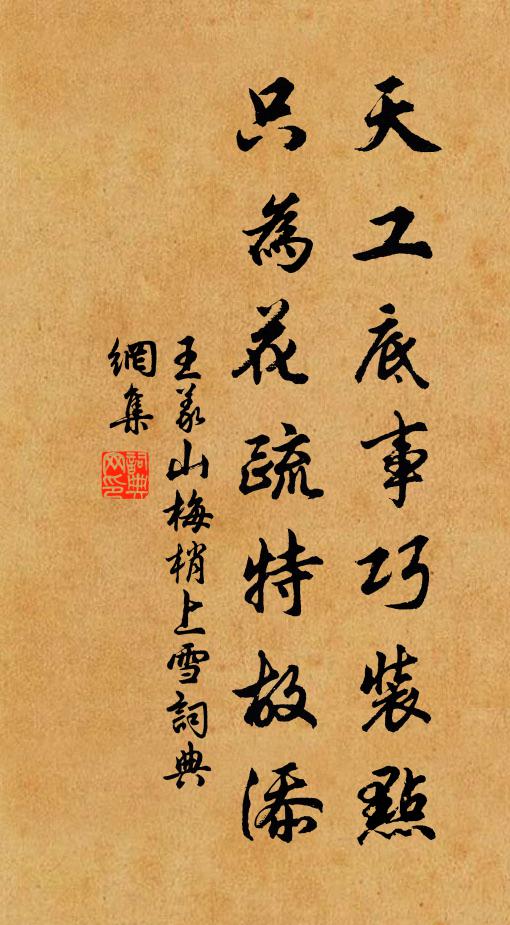 天工底事巧裝點
只為花疏特故添
王義山梅梢上雪詞典
網集
詞典
网印